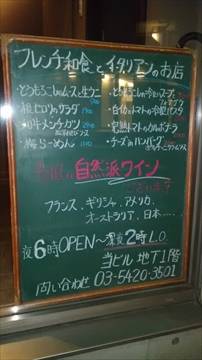 フレンチ和食とイタリアンのお店
・とうもろこしのムースと生ウニ
・帆立のサラダ
・和牛メンチカツ
・らーめん
・とうもろこしの冷たいスープ
・白イカとトマトの冷製パスタ
・完熟トマトのカルボナーラ
・チーズinハンバーグ
自然派ワイン
ございます
フランス、ギリシャ、アメリカ、
オーストラリア、日本.....
夜6時OPEN～深夜2時L.O.
当ビル 地下1階
問い合わせ 03-5420-3501